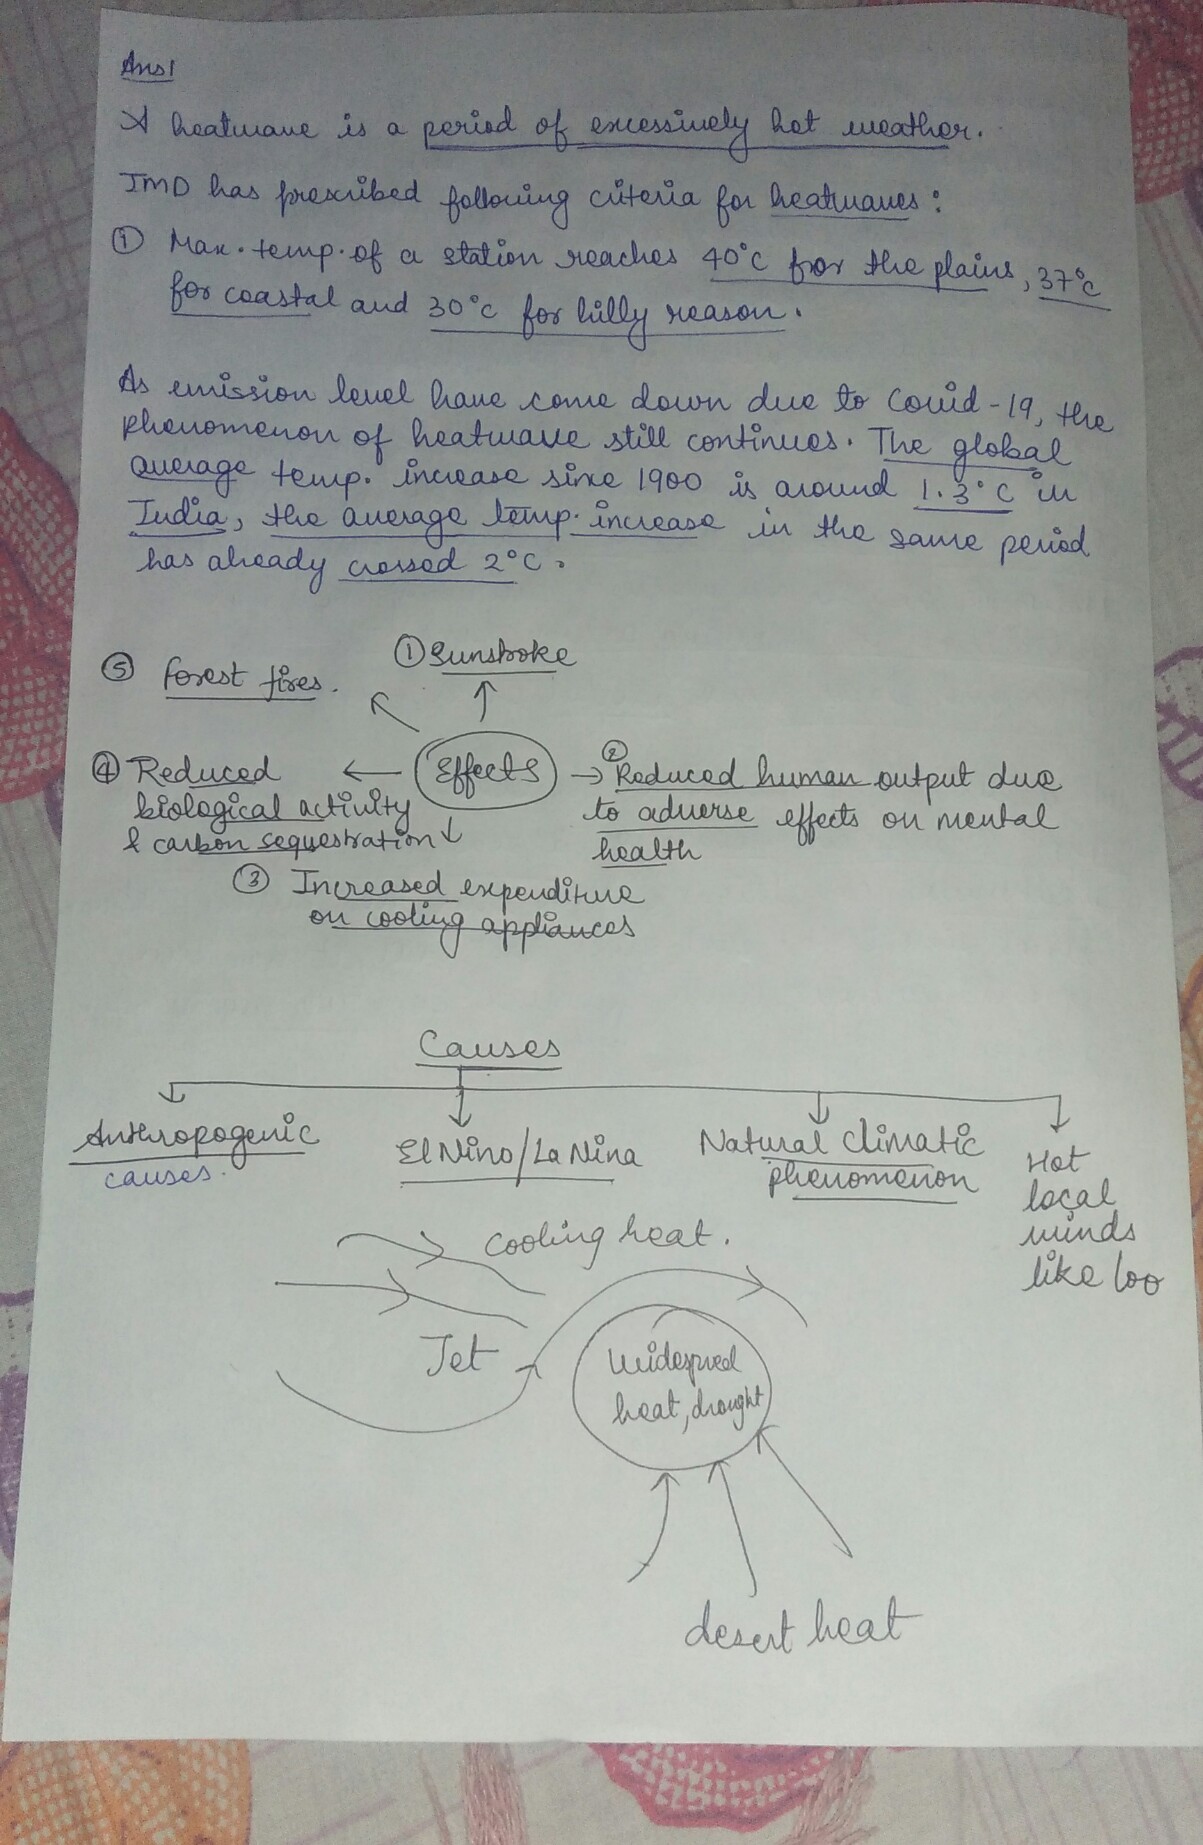 Ans 1
A heatwave is a period of excessively hot weather.
IMD has prescribed following criteria for heatwaves:
① Max. temp. of a station reaches 40°C for the plains, 37°C
for coastal and 30°C for hilly reason.
As emission level have come down due to Covid-19, the
phenomenon of heatwave still continues. The global
average temp. increase since 1900 is around 1.3°C in
India, the average temp. increase in the same period
has already crossed 2°C.
① Sunstroke
⑤ forest fires.
Effects
② Reduced human output due
to adverse effects on mental
health
④ Reduced
biological activity
& carbon sequestration
③ Increased expenditure
on cooling appliances
Causes
Anthropogenic
causes.
El Nino/La Nina
Natural climatic
phenomenon
Hot
local
winds
like loo
cooling heat.
Jet
widespred
heat, drought
desert heat